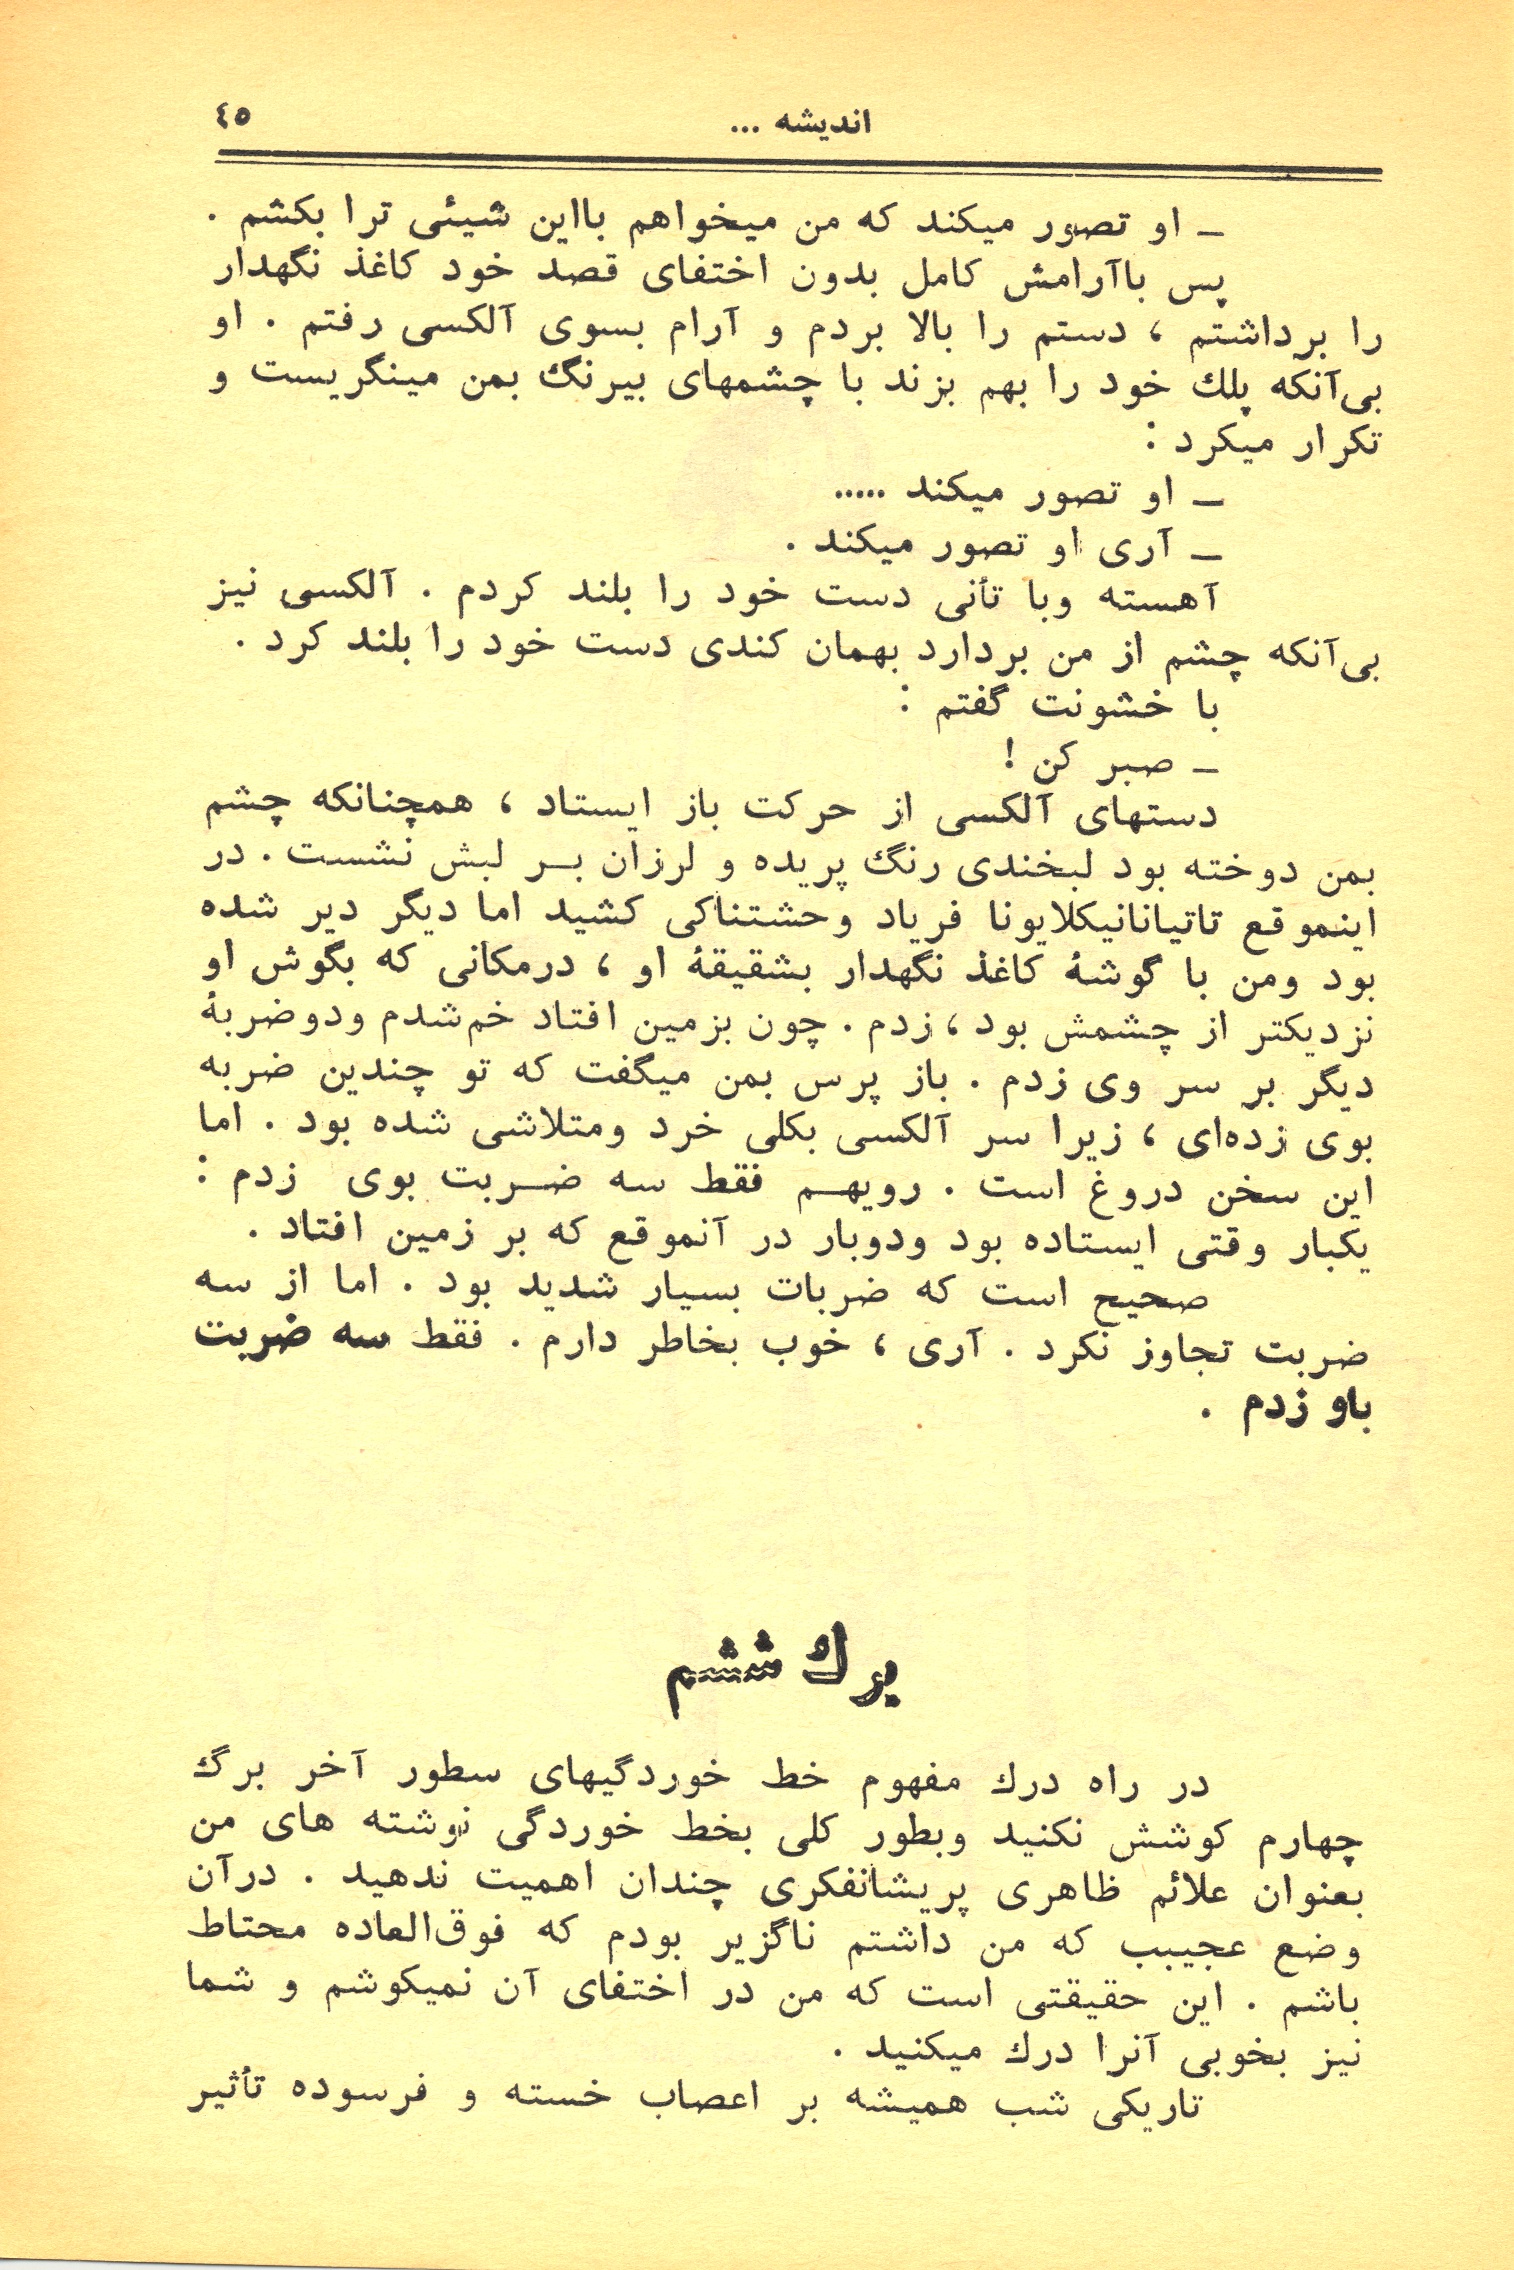 اندیشه ... ٤٥
ـ او تصور میکند که من میخواهم بااین شیئی ترا بکشم .
پس باآرامش کامل بدون اختفای قصد خود کاغذ نگهدار
را برداشتم ، دستم را بالا بردم و آرام بسوی آلکسی رفتم . او
بی‌آنکه پلك خود را بهم بزند با چشمهای بیرنگ بمن مینگریست و
تکرار میکرد :
ـ او تصور میکند .....
ـ آری او تصور میکند .
آهسته وبا تأنی دست خود را بلند کردم . آلکسی نیز
بی‌آنکه چشم از من بردارد بهمان کندی دست خود را بلند کرد .
با خشونت گفتم :
ـ صبر کن !
دستهای آلکسی از حرکت باز ایستاد ، همچنانکه چشم
بمن دوخته بود لبخندی رنگ پریده و لرزان بــر لبش نشست . در
اینموقع تاتیانانیکلایونا فریاد وحشتناکی کشید اما دیگر دیر شده
بود ومن با گوشهٔ کاغذ نگهدار بشقیقهٔ او ، درمکانی که بگوش او
نزدیکتر از چشمش بود ، زدم . چون بزمین افتاد خم‌شدم ودوضربهٔ
دیگر بر سر وی زدم . باز پرس بمن میگفت که تو چندین ضربه
بوی زده‌ای ، زیرا سر آلکسی بکلی خرد ومتلاشی شده بود . اما
این سخن دروغ است . رویهــم فقط سه ضــربت بوی زدم :
یکبار وقتی ایستاده بود ودوبار در آنموقع که بر زمین افتاد .
صحیح است که ضربات بسیار شدید بود . اما از سه
ضربت تجاوز نکرد . آری ، خوب بخاطر دارم . فقط سه ضربت
باو زدم .
برك ششم
در راه درك مفهوم خط خوردگیهای سطور آخر برگ
چهارم کوشش نکنید وبطور کلی بخط خوردگی نوشته های من
بعنوان علائم ظاهری پریشانفکری چندان اهمیت ندهید . درآن
وضع عجیبب که من داشتم ناگزیر بودم که فوق‌العاده محتاط
باشم . این حقیقتی است که من در اختفای آن نمیکوشم و شما
نیز بخوبی آنرا درك میکنید .
تاریکی شب همیشه بر اعصاب خسته و فرسوده تأثیر